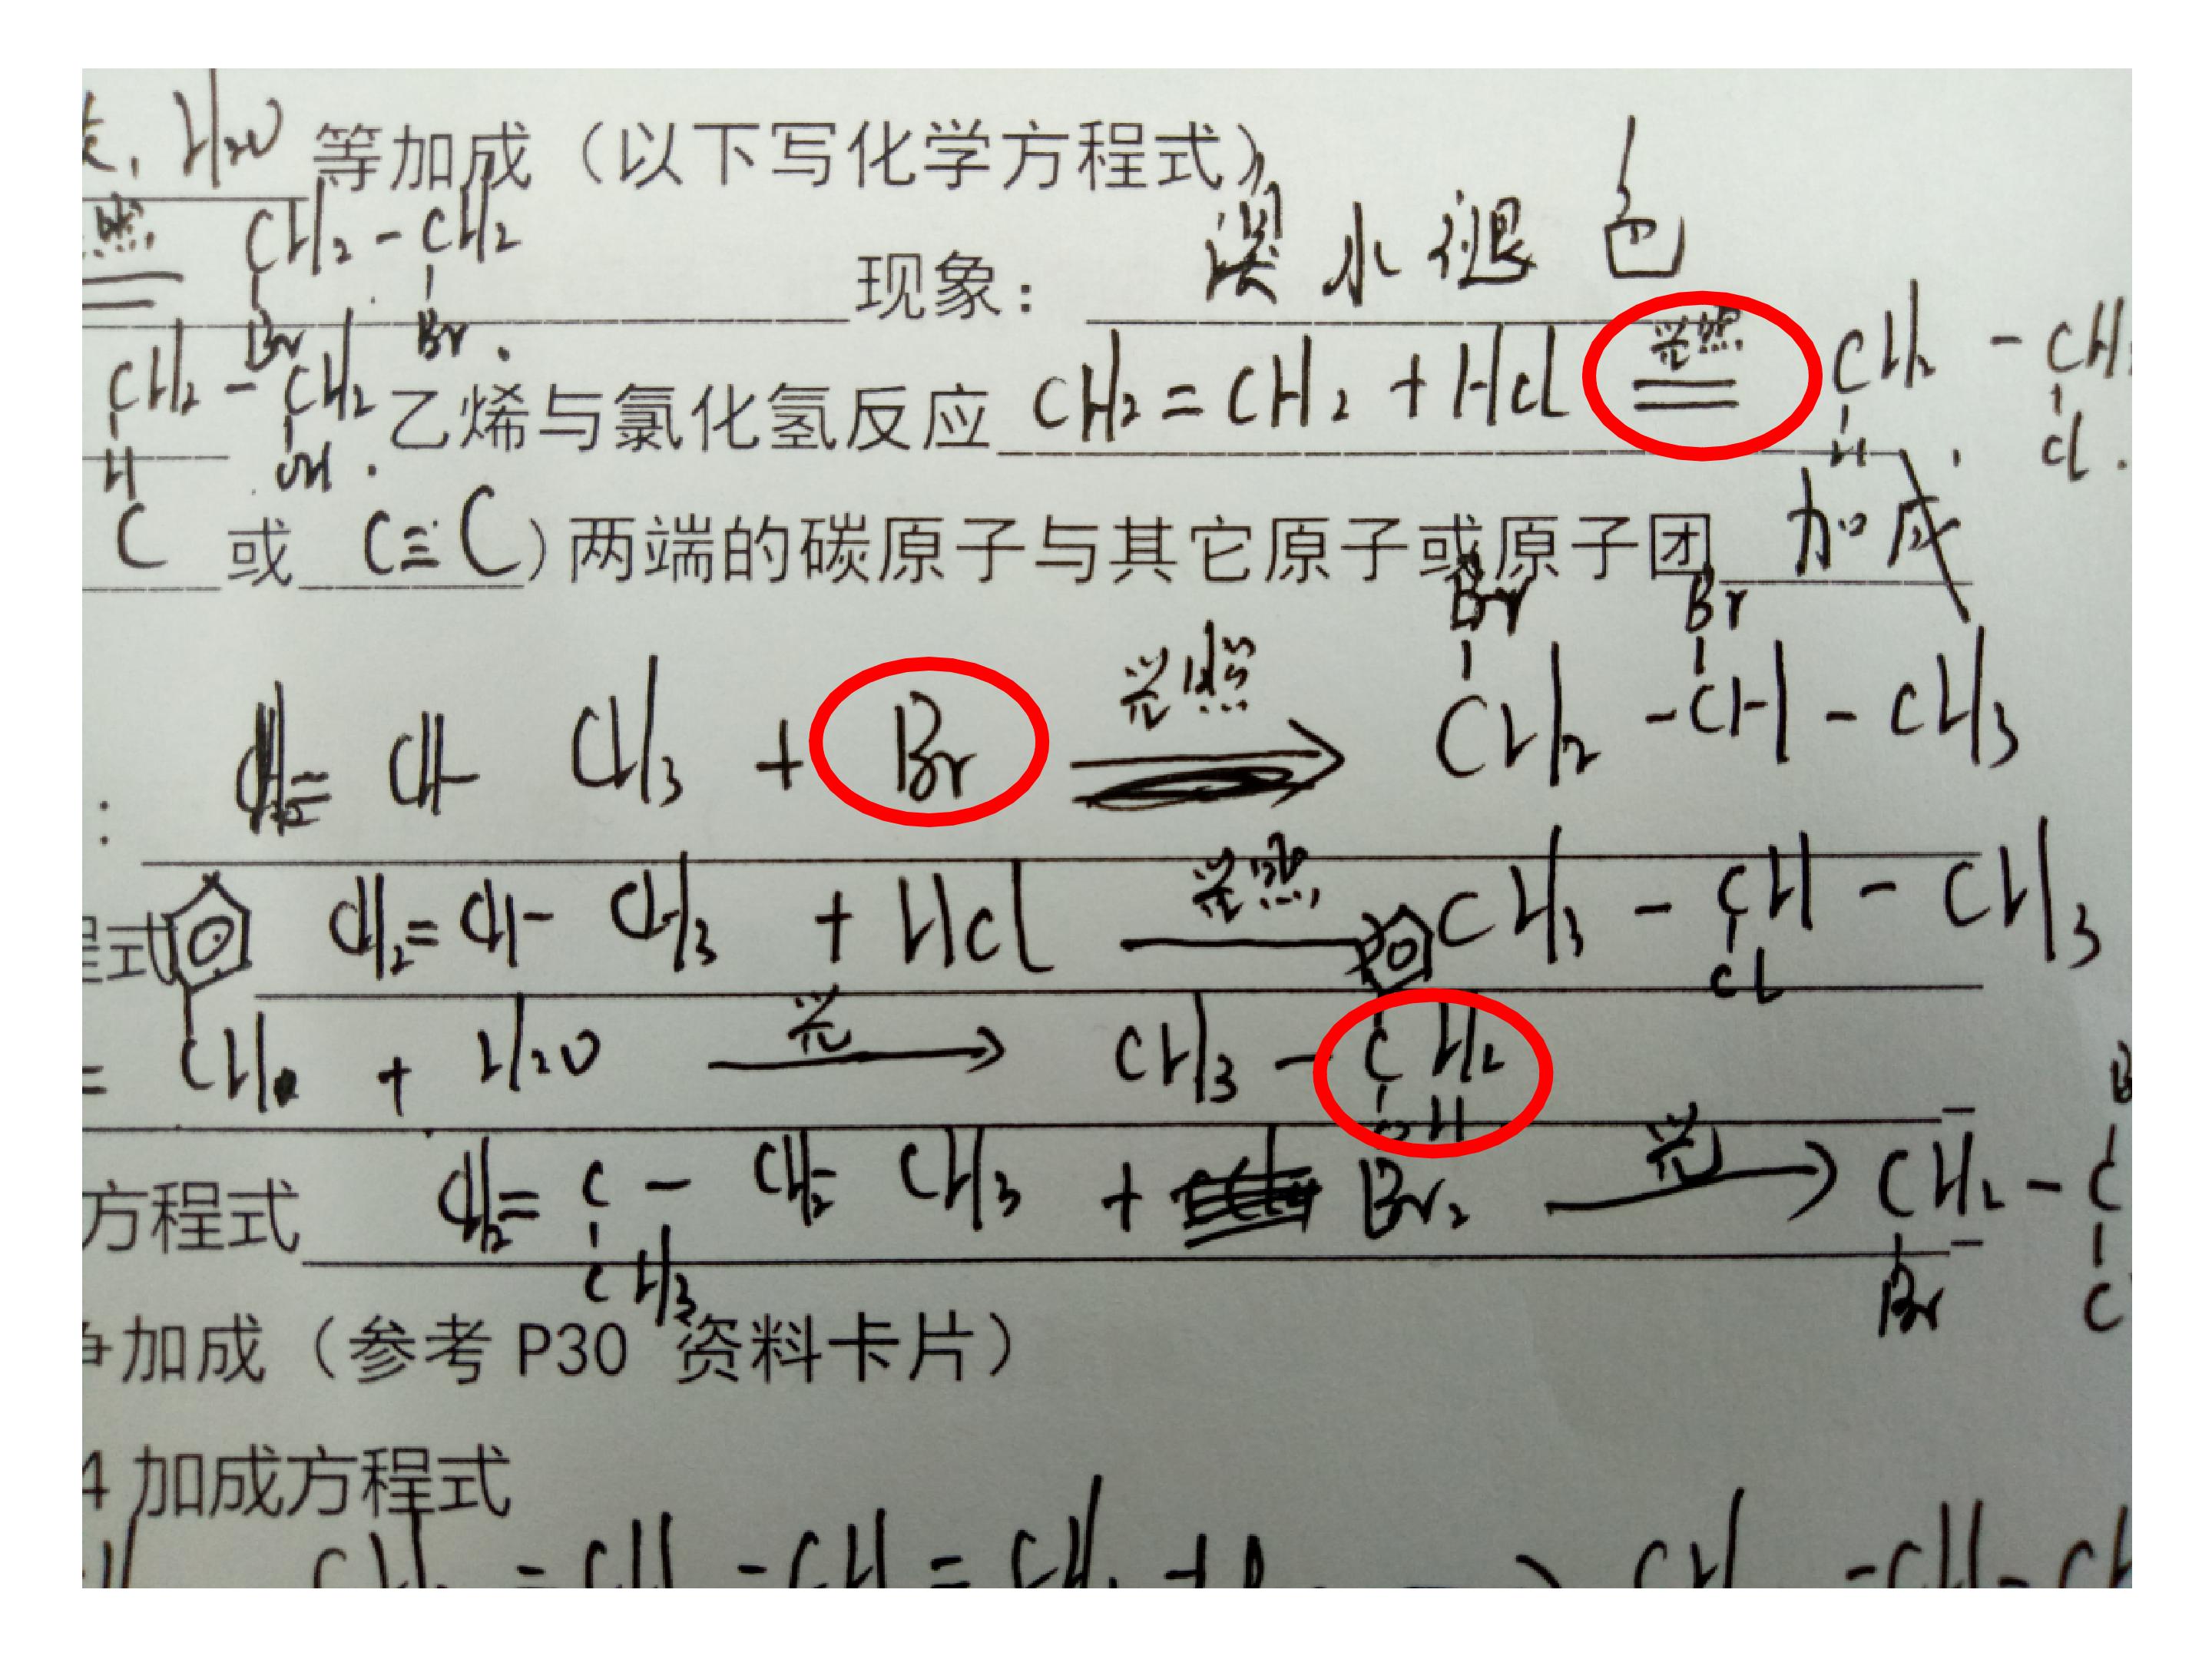 H₂O 等加成（以下写化学方程式）
CH₂-CH₂ 现象： 溴水褪色
Br Br.
CH₂-CH₂ 乙烯与氯化氢反应 CH₂=CH₂+HCl 光照 CH₂-CH
H OH. H Cl.
C 或 C≡C)两端的碳原子与其它原子或原子团 加成
Br Br
: CH₂= CH- CH₃ + Br 光照 CH₂-CH-CH₃
程式 CH₂=CH- CH₃ + HCl 光照 CH₃-CH-CH₃
Cl
= CH₂ + H₂O 光 CH₃-CH₂
OH
方程式 CH₂= C - CH₂ CH₃ + Br₂ 光 CH₂-C
CH₃ Br C
加成（参考 P30 资料卡片）
4 加成方程式
CH = CH -CH = CH + CH -CH-CH